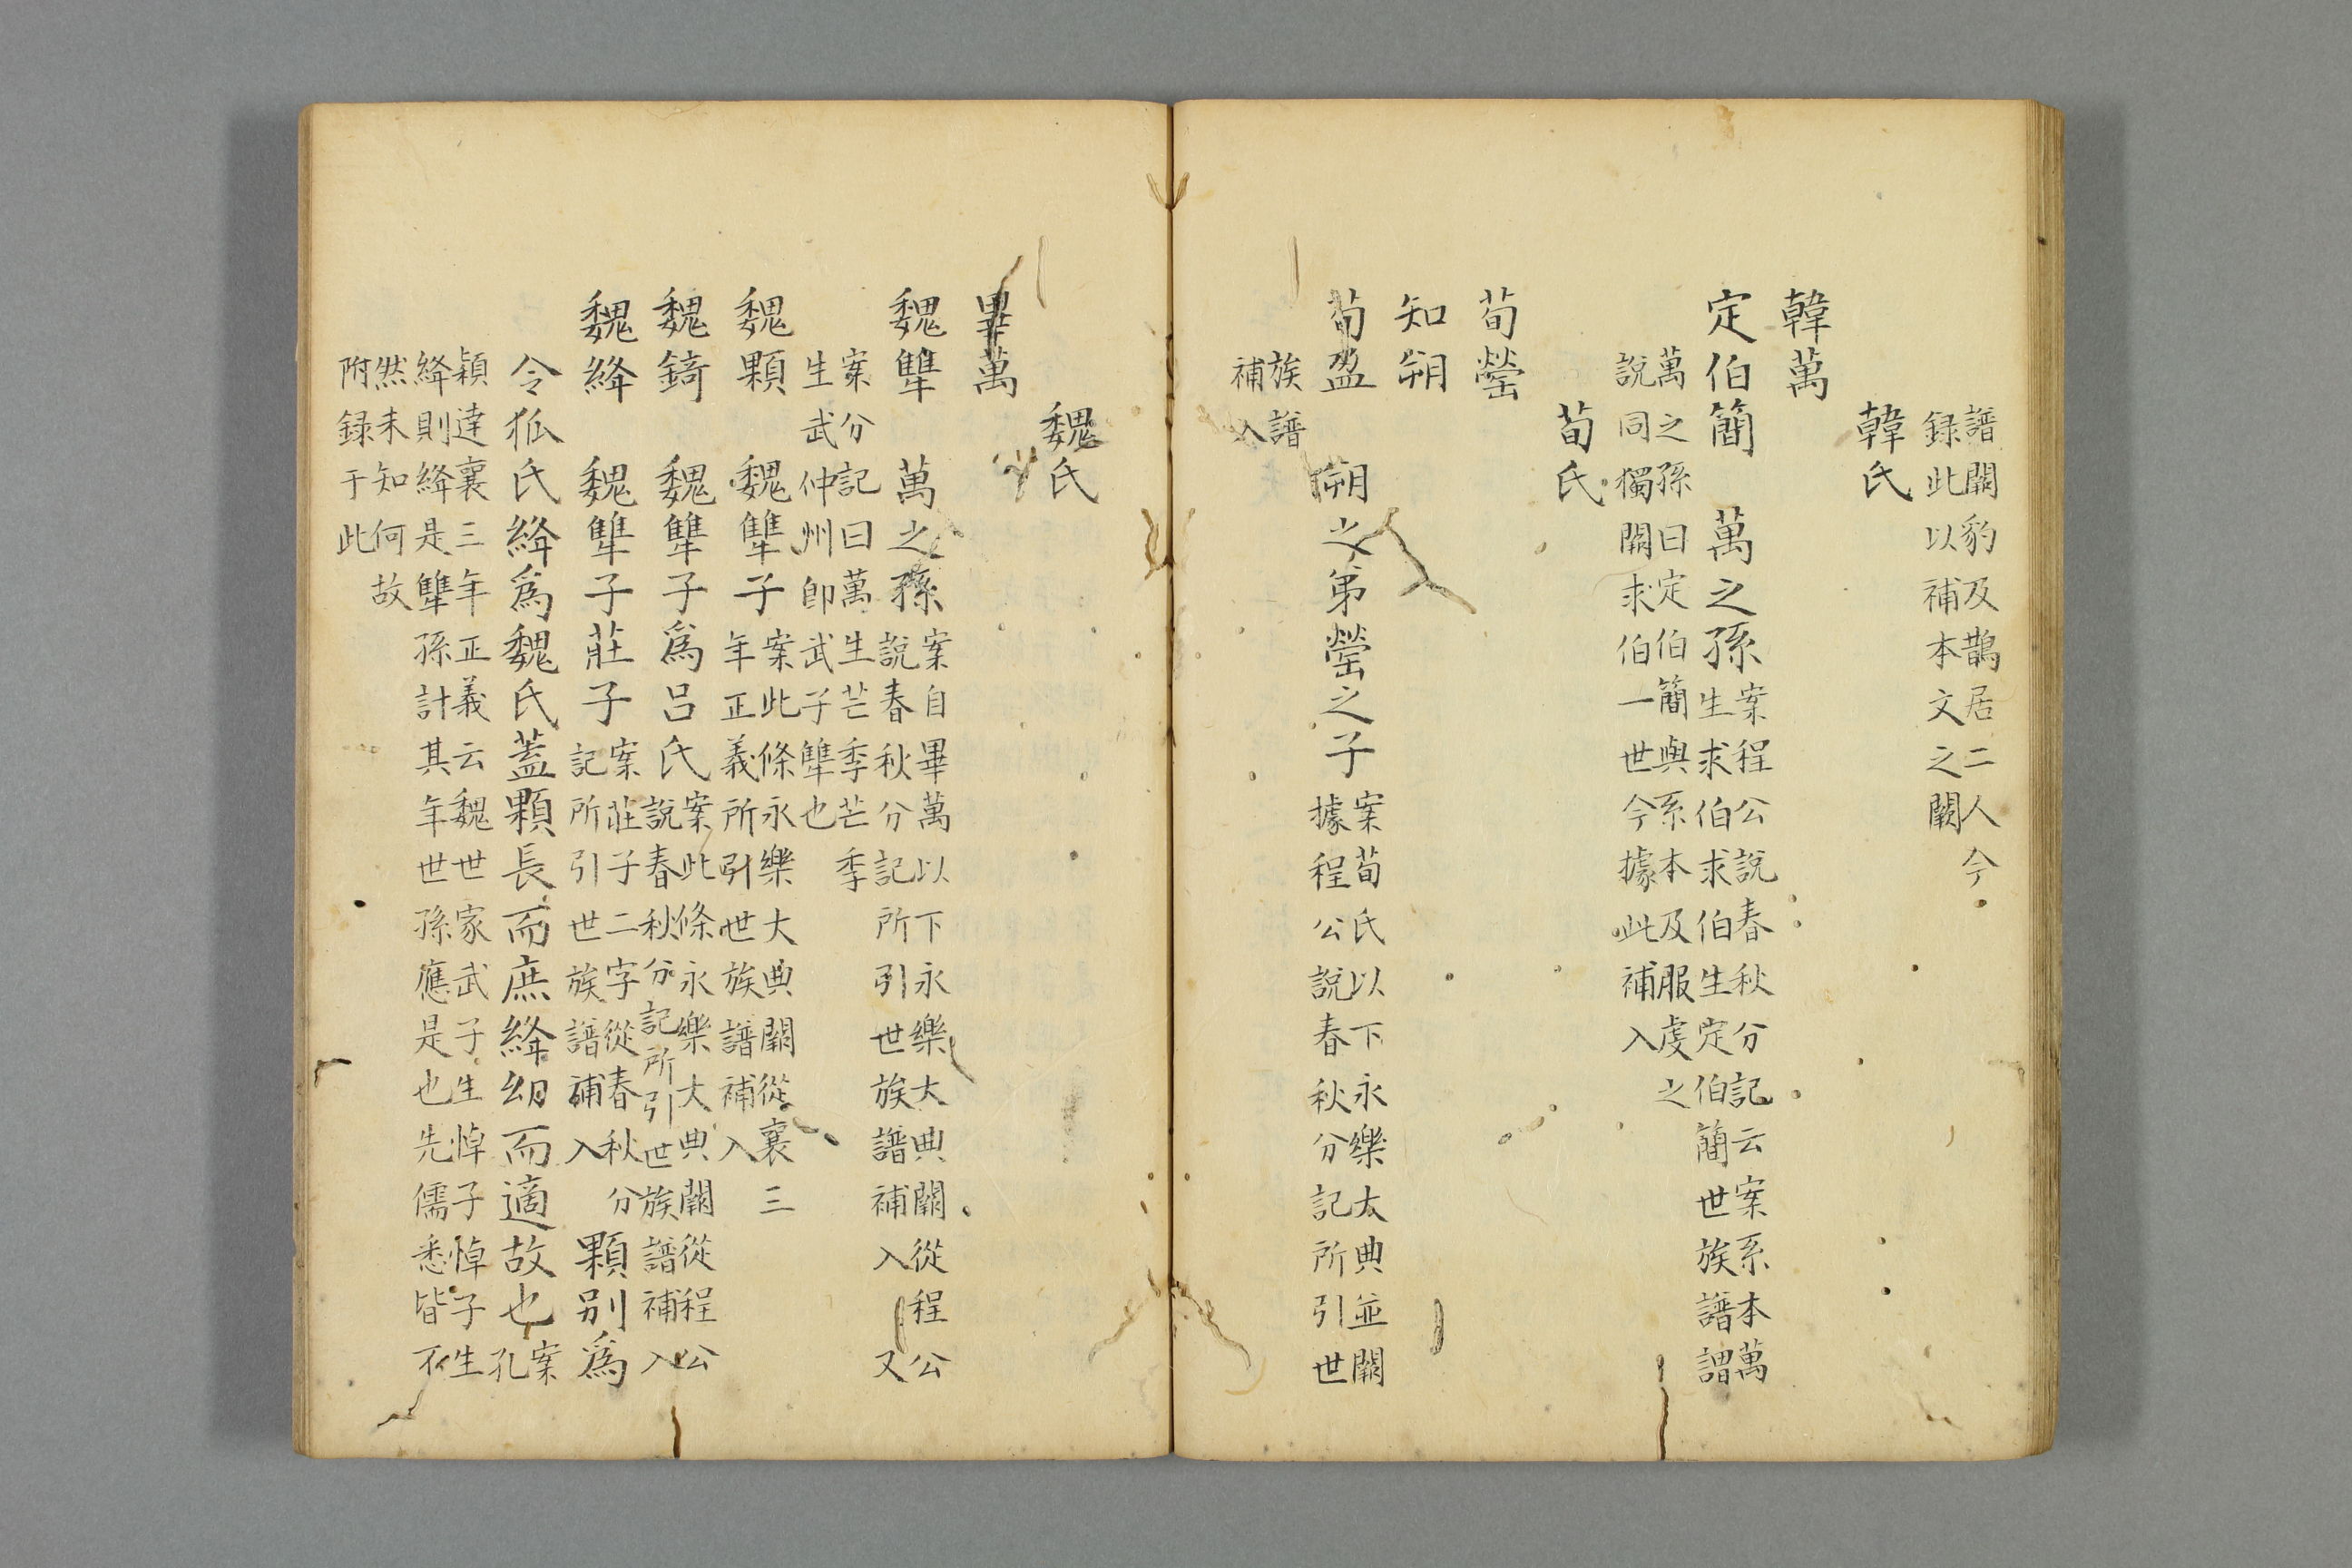 譜闕豹及鵲居二人今
録此以補本文之闕
韓氏
韓萬
定伯簡　萬之孫案程公說春秋分記云案系本萬
生求伯求伯生定伯簡世族譜謂
萬之孫曰定伯簡與系本及服虔之
說同獨闕求伯一世今據此補入
荀氏
荀罃
知朔
荀盈　朔之弟罃之子案荀氏以下永樂大典並闕
據程公說春秋分記所引世
族譜
補入
魏氏
畢萬
魏犨　萬之孫案自畢萬以下永樂大典闕從程公
說春秋分記所引世族譜補入又
案分記曰萬生芒季芒季
生武仲州卽武子犨也
魏顆　魏犨子案此條永樂大典闕從襄三
年正義所引世族譜補入
魏錡　魏犨子爲呂氏案此條永樂大典闕從程公
說春秋分記所引世族譜補入
魏絳　魏犨子莊子案莊子二字從春秋分
記所引世族譜補入　顆别爲
令狐氏絳爲魏氏蓋顆長而庶絳幼而適故也案
孔
穎達襄三年正義云魏世家武子生悼子悼子生
絳則絳是犨孫計其年世孫應是也先儒悉皆不
然未知何故
附録于此